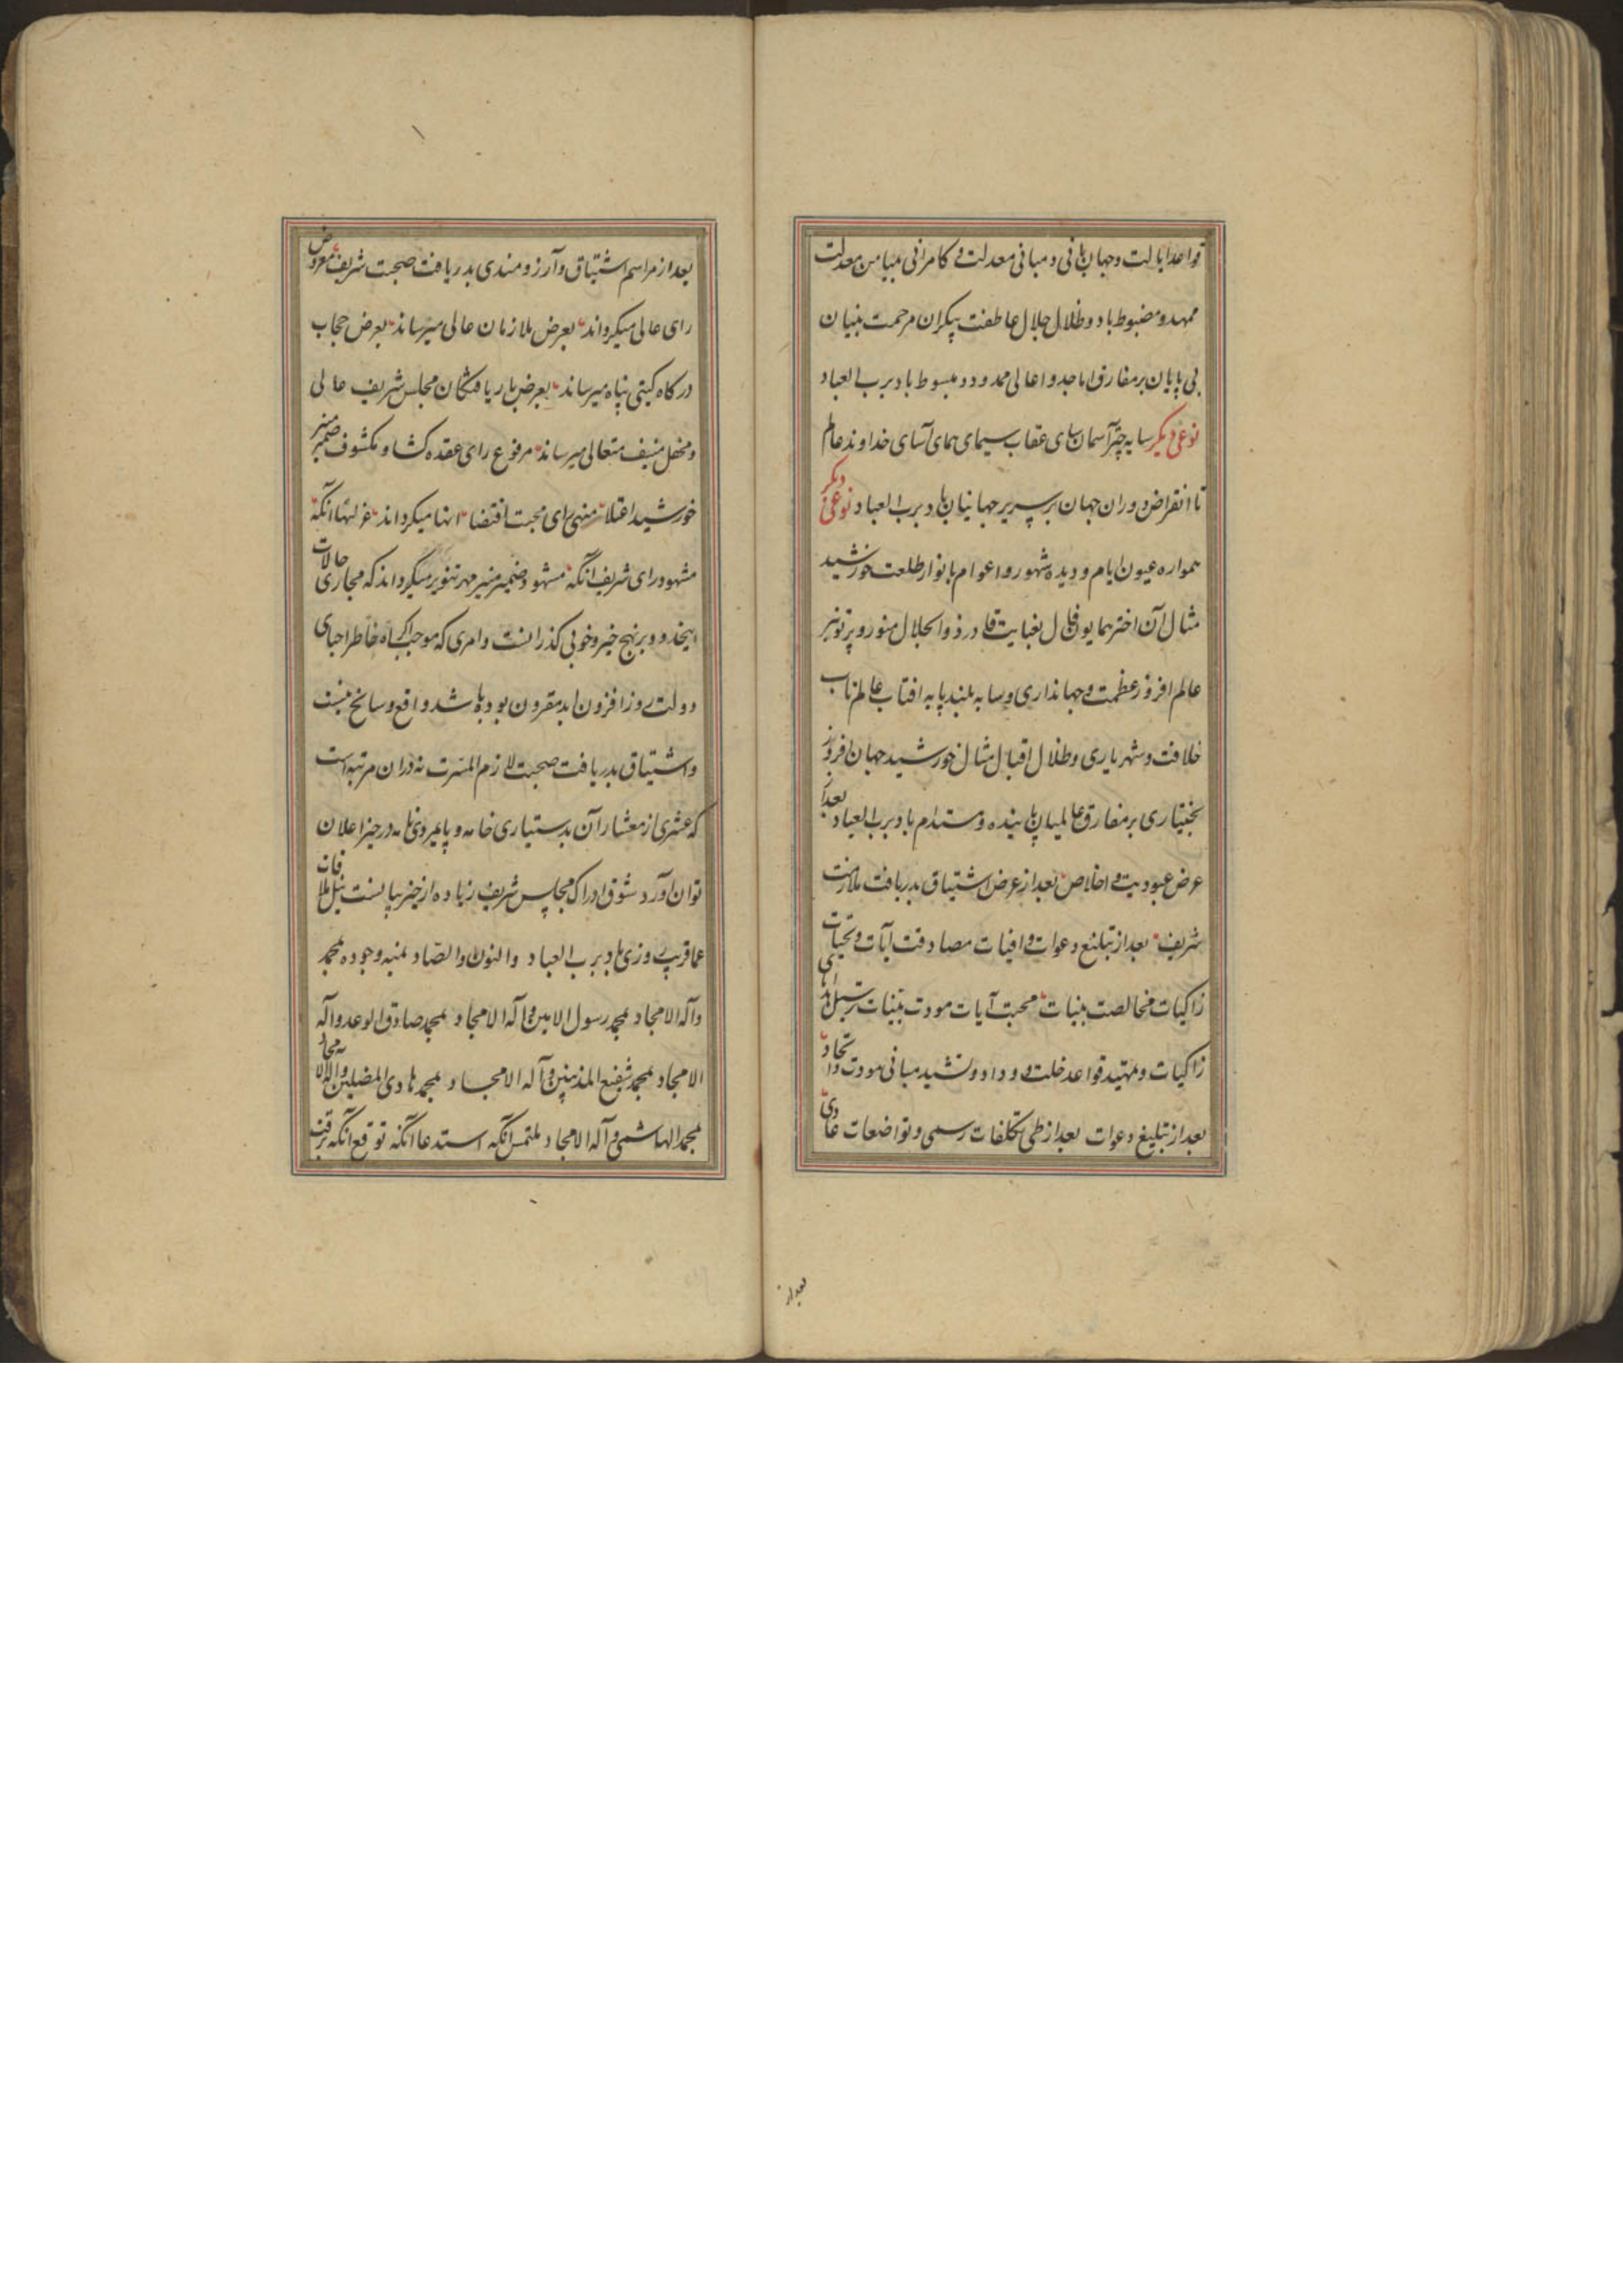 قواعد ایالت و جهانبانی و مبانی معدلت و کامرانی بمیامن معدلت
ممهد و مضبوط باد و ظلال جلال عاطفت بیکران مرحمت بنیان
بی پایان بر مفارق اماجد و اعالی ممدود و مبسوط باد برب العباد
نوعی دیگر سایه چتر آسمان سای عقاب سیمای همای آسای خداوند عالم
تا انقراض دوران جهان بر سریر جهانیان باد برب العباد نوعی دیگر
همواره عیون ایام و دیده شهور و اعوام بانوار طلعت خورشید
مثال آن اختر همایون فال بغایت قادر ذو الجلال منور و پرتو نیر
عالم افروز عظمت و جهانداری و سایه بلند پایه افتاب عالمتاب
خلافت و شهریاری و ظلال اقبال مثال خورشید جهان افروز
بختیاری بر مفارق عالمیان پاینده و مستدام باد برب العباد بعد از
عرض عبودیت و اخلاص بعد از عرض اشتیاق بدریافت ملازمت
شریف بعد از تبلیغ دعوات وافیات مصادقت آیات و تحیات
زاکیات مخالصت بنیات محبت آیات مودت بینات
زاکیات و تمهید قواعد خلت و وداد و تشیید مبانی مودت و اتحاد
بعد از تبلیغ دعوات بعد از طی تکلفات رسمی و تواضعات عادی
بعد از
بعد از مراسم اشتیاق و آرزومندی بدریافت صحبت شریف معروض
رای عالی میگرداند بعرض ملازمان عالی میرساند بعرض حجاب
درکاه کیتی پناه میرساند بعرض باریافتگان مجلس شریف عالی
و محفل منیف متعالی میرساند مرفوع رای عقده کشا و مکشوف ضمیر منیر
خورشید اعتلا منهی رای محبت اقتضا انها میگرداند آنکه
مشهود رای شریف آنکه مشهود ضمیر منیر مهر تنویر میگرداند که مجاری حالات
اینحدود بر نهج خیر و خوبی کذرانست و امری که موجب اکراه خاطر احبای
دولت روز افزون ابد مقرون بوده باشد واقع و سانح نیست
و اشتیاق بدریافت صحبت لازم المسرت نه دران مرتبه است
که عشری از معشار آن بدستیاری خامه و پایمردی نامه در حیز اعلان
توان آورد شوق ادراک مجالس شریف زیاده از حیز بیانست نیل ملاقات
عما قریب روزی باد برب العباد و النون و الصاد بمنه وجوده بمحمد
و آله الامجاد بمحمد رسول الامین و آله الامجاد بمحمد صادق الوعد و آله
الامجاد بمحمد شفیع المذنبین و آله الامجاد بمحمد هادی المضلین و آله الامجاد
بمحمد الهاشمی و آله الامجاد ملتمس آنکه استدعا آنکه توقع آنکه